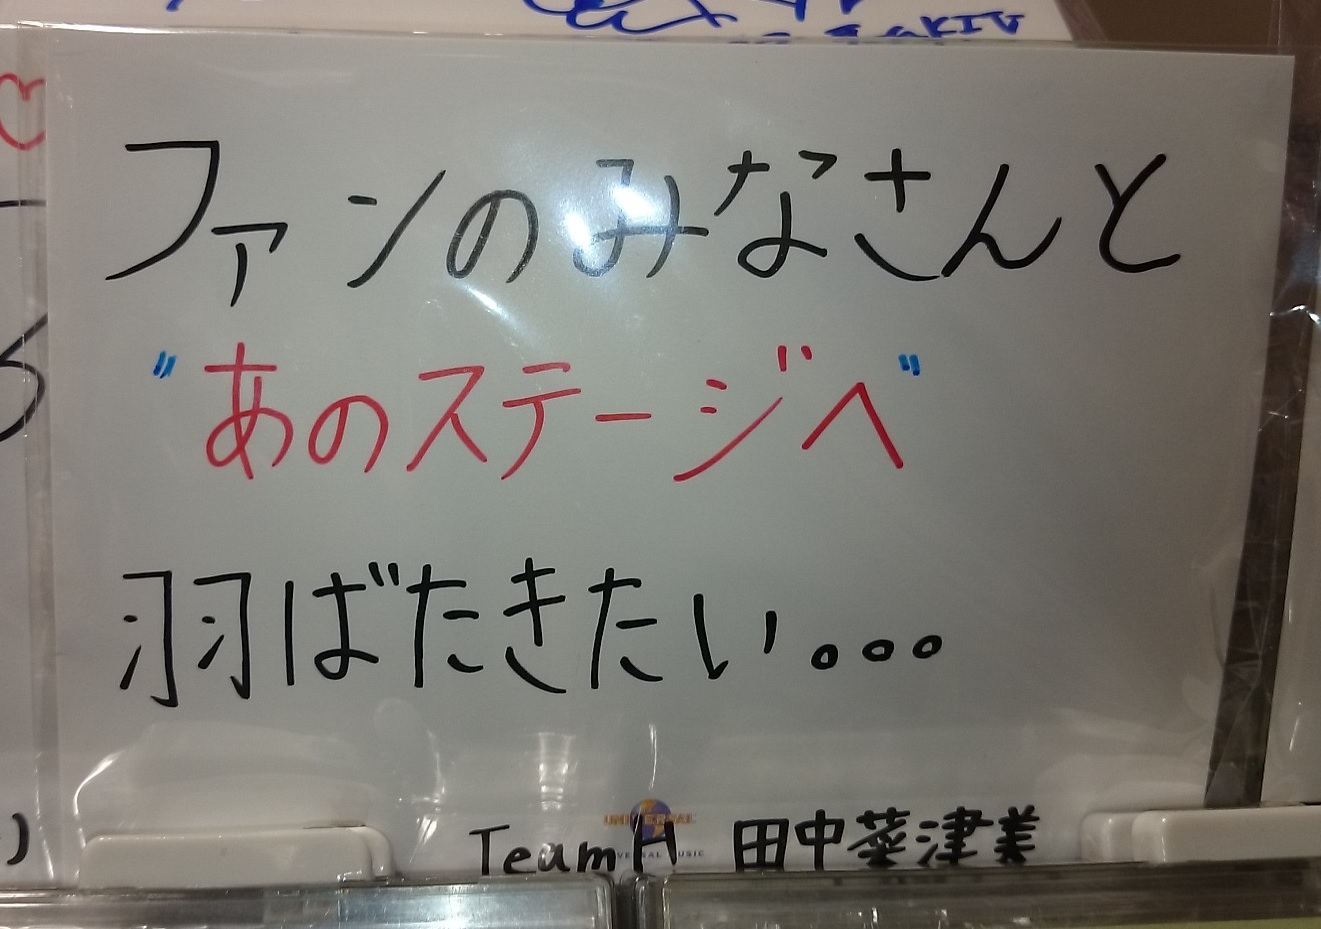 ファンのみなさんと
"あのステージへ"
羽ばたきたい。。。
UNIVERSAL
UNIVERSAL MUSIC
TeamH 田中菜津美